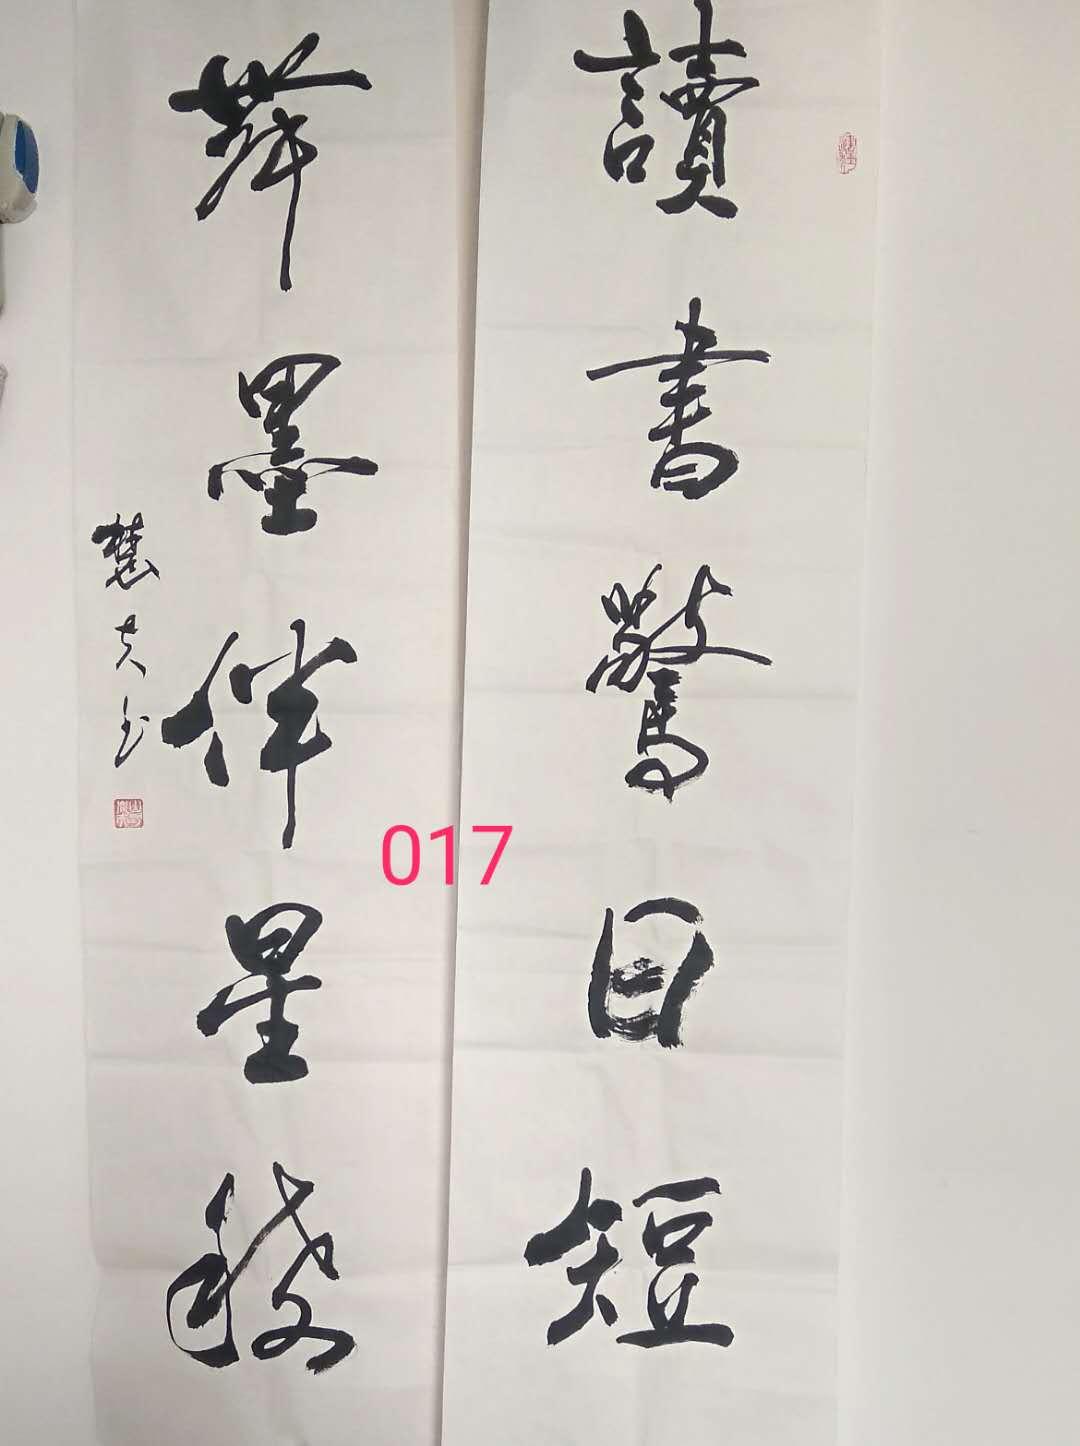 讀書驚日短
舞墨伴星移
慧夫书
017